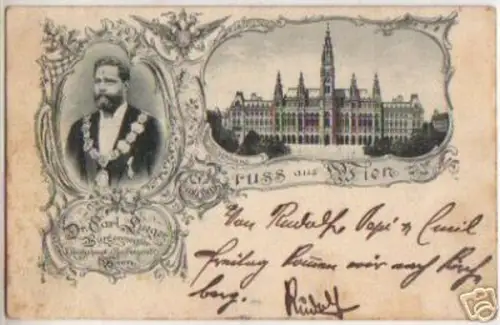 Gruss aus Wien
Dr. Carl Lueger
Bürgermeister
Wien.
Von Rudolf Pepi & Emil
freitag kommen wir nach Kirch
berg. Rudolf